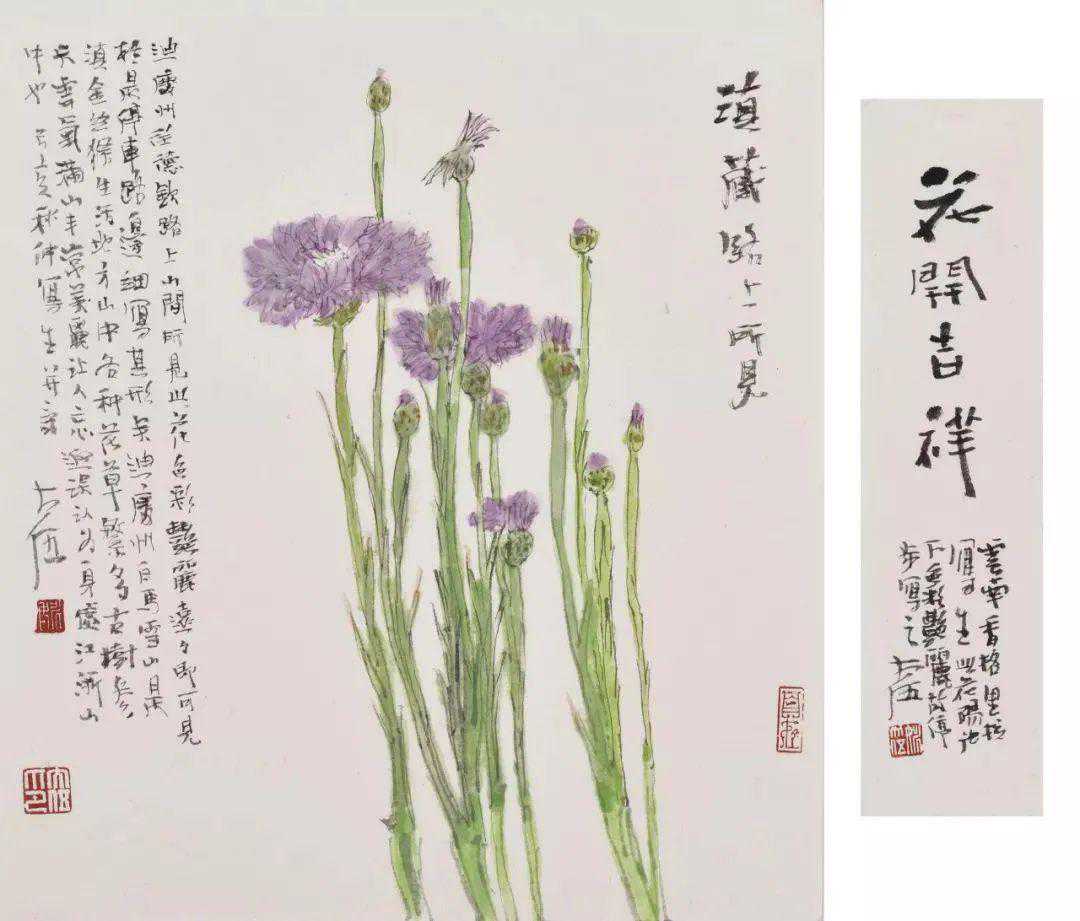 滇藏路上所見
迪慶州往德欽路上山間所見此花色彩艷麗遠々即可見
於是停車路邊細寫其形矣迪慶州白馬雪山是
滇金丝猴生活地方山中各种花草繁多古樹參
天雲氣滿山非常美麗让人忘返误认为身處江浙山
中也 己亥秋仲寫生并記 大伍
花開吉祥
雲南香格里拉
生此花陽光
下色彩艷麗故停
步寫之 大伍